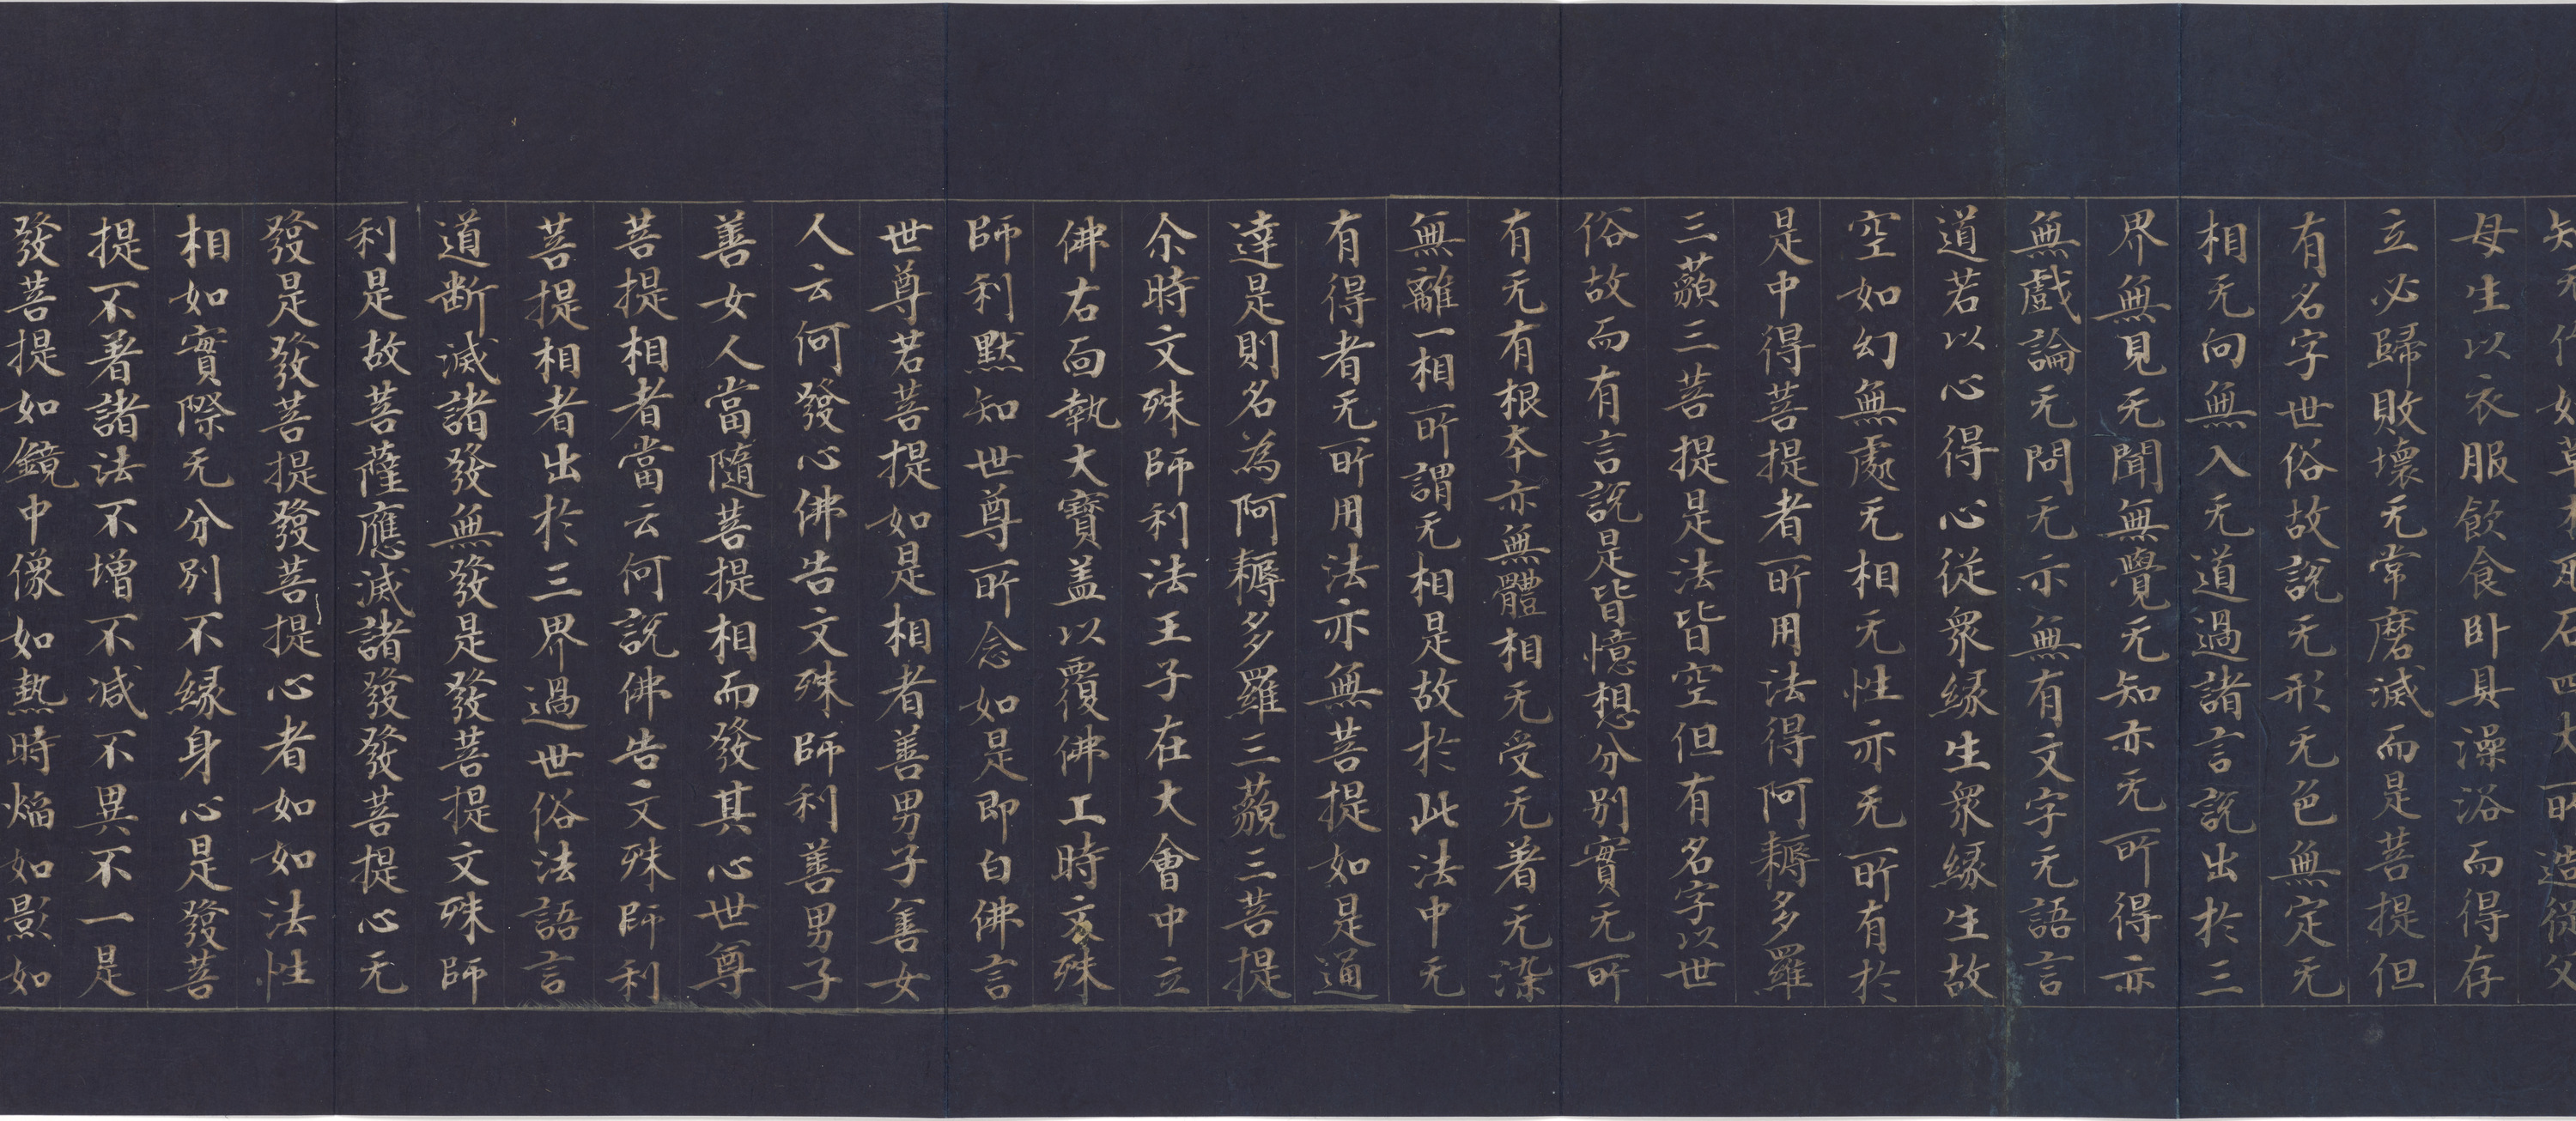 母生以衣服飲食卧具澡浴而得存
立必歸敗壞无常磨滅而是菩提但
有名字世俗故說无形无色無定无
相无向無入无道過諸言說出於三
界無見无聞無覺无知亦无所得亦
無戲論无問无示無有文字无語言
道若以心得心從眾緣生眾緣生故
空如幻無處无相无性亦无所有於
是中得菩提者所用法得阿耨多羅
三藐三菩提是法皆空但有名字以世
俗故而有言說是皆憶想分別實无所
有无有根本亦無體相无受无著无染
無離一相所謂无相是故於此法中无
有得者无所用法亦無菩提如是通
達是則名為阿耨多羅三藐三菩提
尒時文殊師利法王子在大會中立
佛右面執大寶盖以覆佛上時文殊
師利默知世尊所念如是即白佛言
世尊若菩提如是相者善男子善女
人云何發心佛告文殊師利善男子
善女人當隨菩提相而發其心世尊
菩提相者當云何說佛告文殊師利
菩提相者出於三界過世俗法語言
道断滅諸發無發是發菩提文殊師
利是故菩薩應滅諸發發菩提心无
發是發菩提發菩提心者如如法性
相如實際无分別不緣身心是發菩
提不著諸法不增不减不異不一是
發菩提如鏡中像如熱時焰如影如